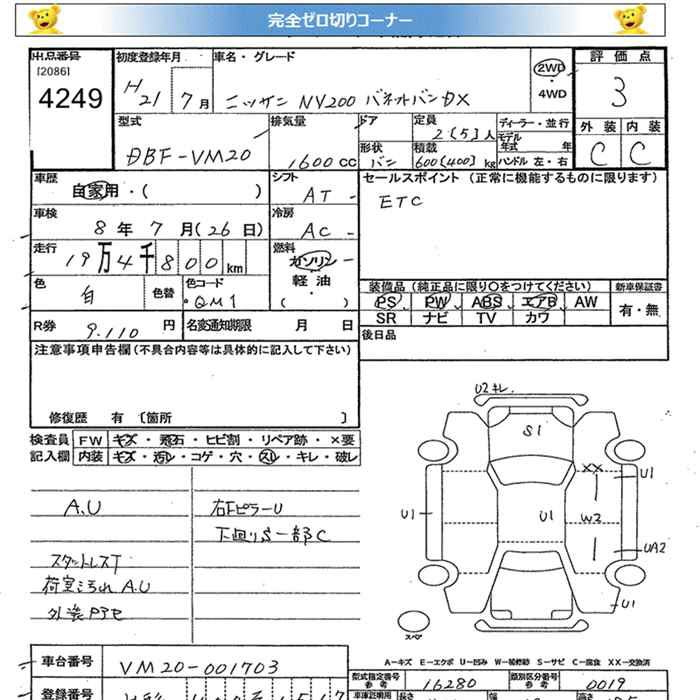 完全ゼロ切りコーナー
出品番号
[2086]
4249
初度登録年月
H21 7月
車名・グレード
ニッサン NV200 バネットバンDX
2WD
・
4WD
評価点
3
型式
DBF-VM20
排気量
1600cc
ドア
形状
バン
定員
2(5)人
積載
600(400)kg
ディーラー・並行
モデル
年式 年
ハンドル 左・右
外装 内装
C C
車歴
自家用・( )
シフト
AT -
セールスポイント (正常に機能するものに限ります)
ETC
車検
8年 7月(26日)
冷房
AC -
走行
19万4千800km
燃料
ガソリン
軽油
・( )
色
白
色替
色コード
・QM1
装備品 (純正品に限り○をつけてください)
新車保証書
PS PW ABS エアB AW
SR ナビ TV カワ
有・無
R券
9.110円
名変通知期限 月 日
後日品
注意事項申告欄(不具合内容等は具体的に記入して下さい)
修復歴 有 〔箇所 〕
検査員
記入欄
FW キズ・飛石・ヒビ割・リペア跡・×要
内装 キズ・汚レ・コゲ・穴・スレ・キレ・破レ
A.U
スタットレスT
荷室こうれ A.U
外装Pアセ
右Fピラー U
下廻りS一部C
U2キレ
S1
XX
U1
W2
U1
U1
UA2
U1
スペア
A-キズ E-エクボ U-凹み W-補修跡 S-サビ C-腐食 XX-交換済
車台番号
VM20-001703
型式指定番号
参考
16280
類別区分番号
参考
0019
登録番号
車庫証明用
長さ